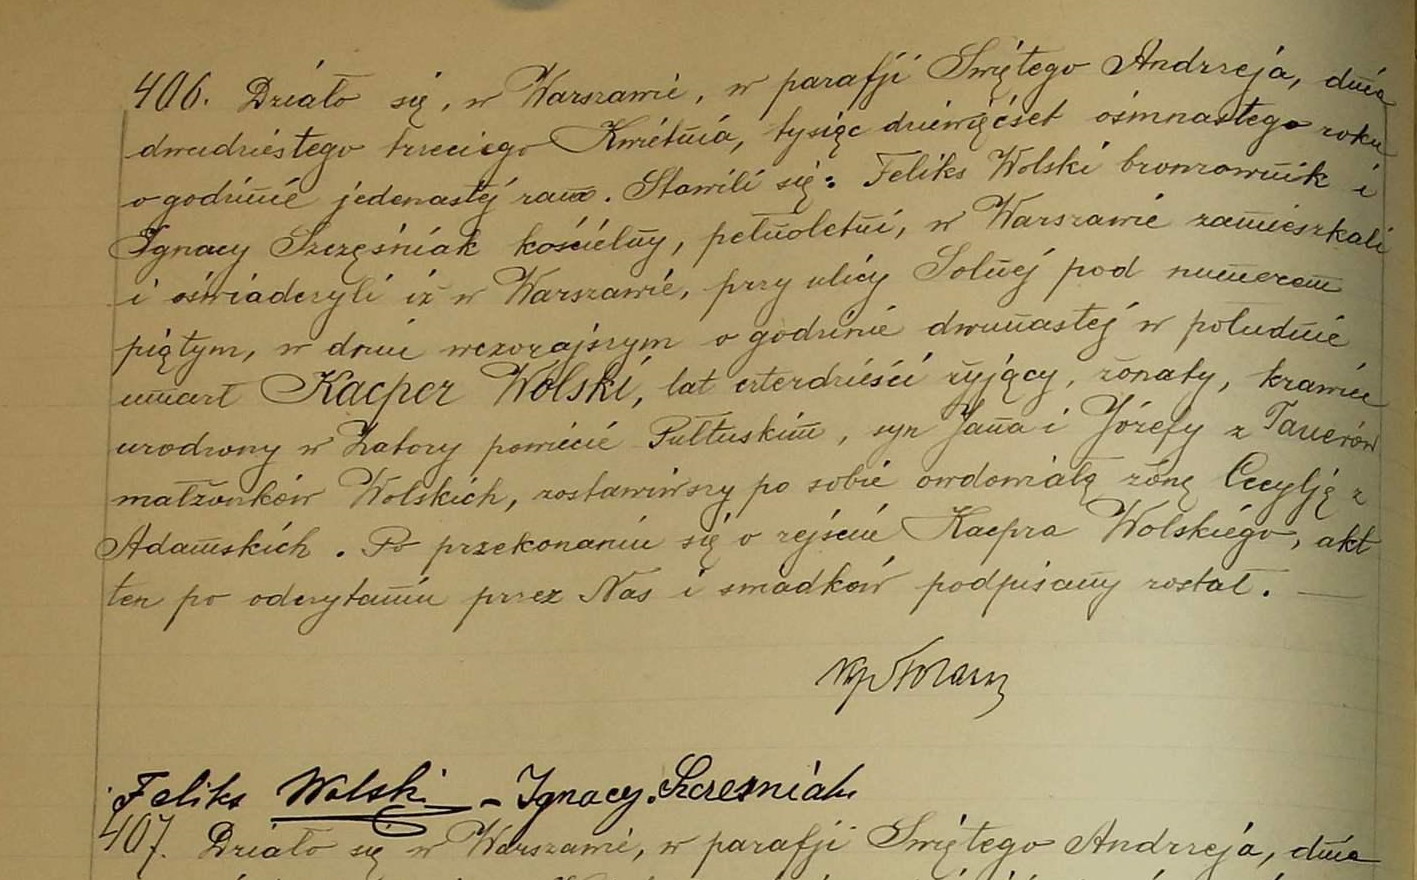 406. Działo się, w Warszawie, w parafji Świętego Andrzeja, dnia
dwudziestego trzeciego Kwietnia, tysiąc dziewięćset ośmnastego roku
o godzinie jedenastej rano. Stawili się: Feliks Wolski bronzownik i
Ignacy Szczęśniak kościelny, pełnoletni, w Warszawie zamieszkali
i oświadczyli iż w Warszawie, przy ulicy Solnej pod numerem
piątym, w dniu wczorajszym o godzinie dwunastej w południe
umarł Kacper Wolski, lat czterdzieści żyjący, żonaty, krawiec
urodzony w Zatory powiecie Pułtuskim, syn Jana i Józefy z Tanerów
małżonków Wolskich, zostawiwszy po sobie owdowiałą żonę Cecylję z
Adamskich. Po przekonaniu się o zejściu Kacpra Wolskiego, akt
ten po odczytaniu przez Nas i świadków podpisany został.
Feliks Wolski - Ignacy Szczesniak
407. Działo się w Warszawie, w parafji Świętego Andrzeja, dnia